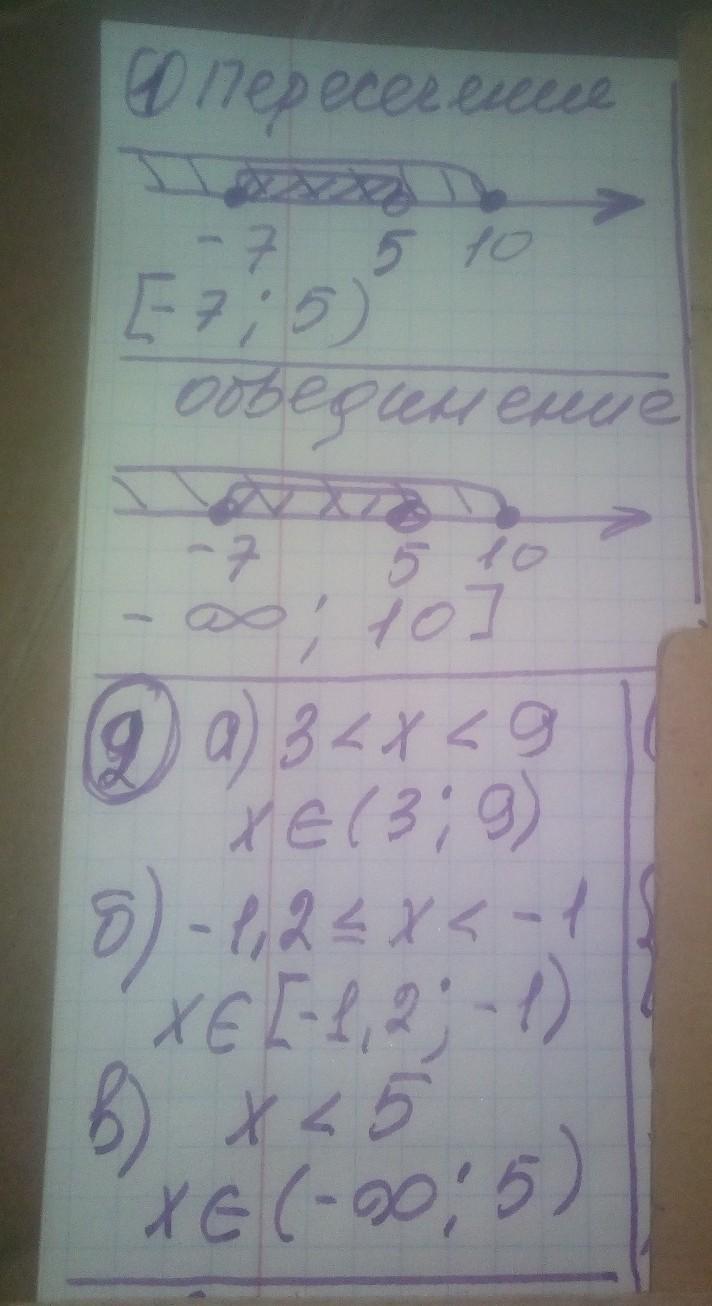 1 Пересечение
-7 5 10
[-7; 5)
объединение
-7 5 10
- ∞; 10]
2 а) 3 < x < 9
x ∈ (3; 9)
б) -1,2 ≤ x < -1
x ∈ [-1,2; -1)
в) x < 5
x ∈ (-∞; 5)